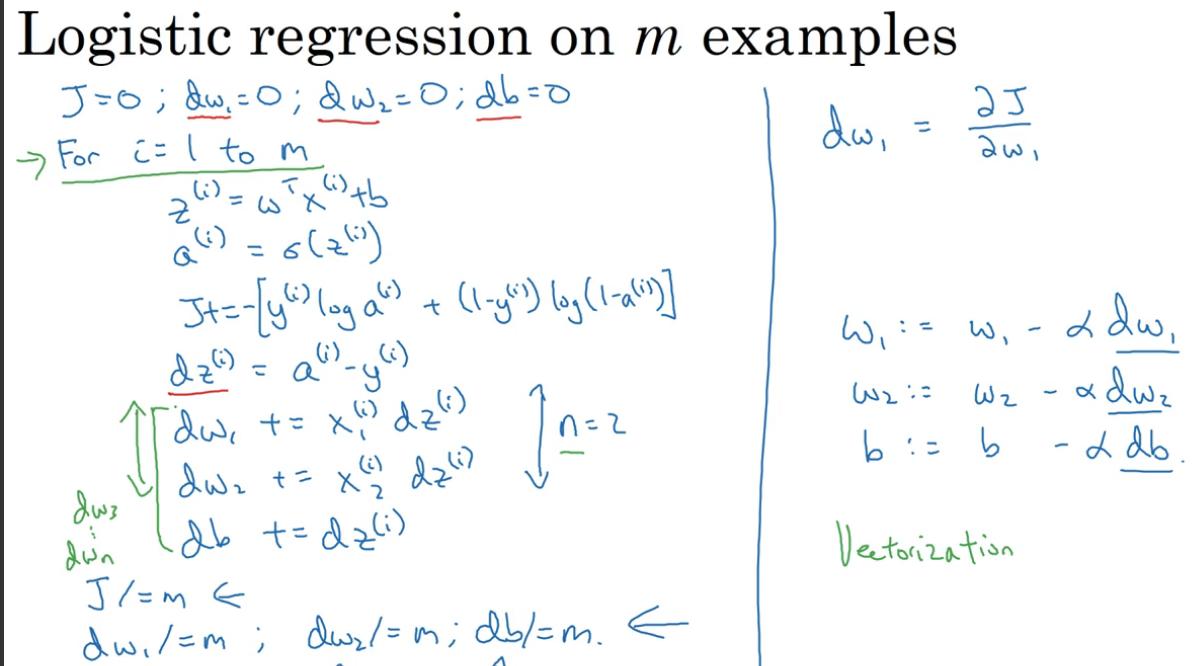 Logistic regression on m examples
J=0; dw₁=0; dw₂=0; db=0
→ For i=1 to m
z⁽ⁱ⁾ = wᵀx⁽ⁱ⁾+b
a⁽ⁱ⁾ = σ(z⁽ⁱ⁾)
J+=-[y⁽ⁱ⁾ log a⁽ⁱ⁾ + (1-y⁽ⁱ⁾) log(1-a⁽ⁱ⁾)]
dz⁽ⁱ⁾ = a⁽ⁱ⁾-y⁽ⁱ⁾
dw₁ += x₁⁽ⁱ⁾ dz⁽ⁱ⁾
dw₂ += x₂⁽ⁱ⁾ dz⁽ⁱ⁾
db += dz⁽ⁱ⁾
n=2
dw₃
⋮
dwₙ
J/=m ←
dw₁/=m; dw₂/=m; db/=m. ←
dw₁ = ∂J/∂w₁
w₁ := w₁ - α dw₁
w₂ := w₂ - α dw₂
b := b - α db.
Vectorization